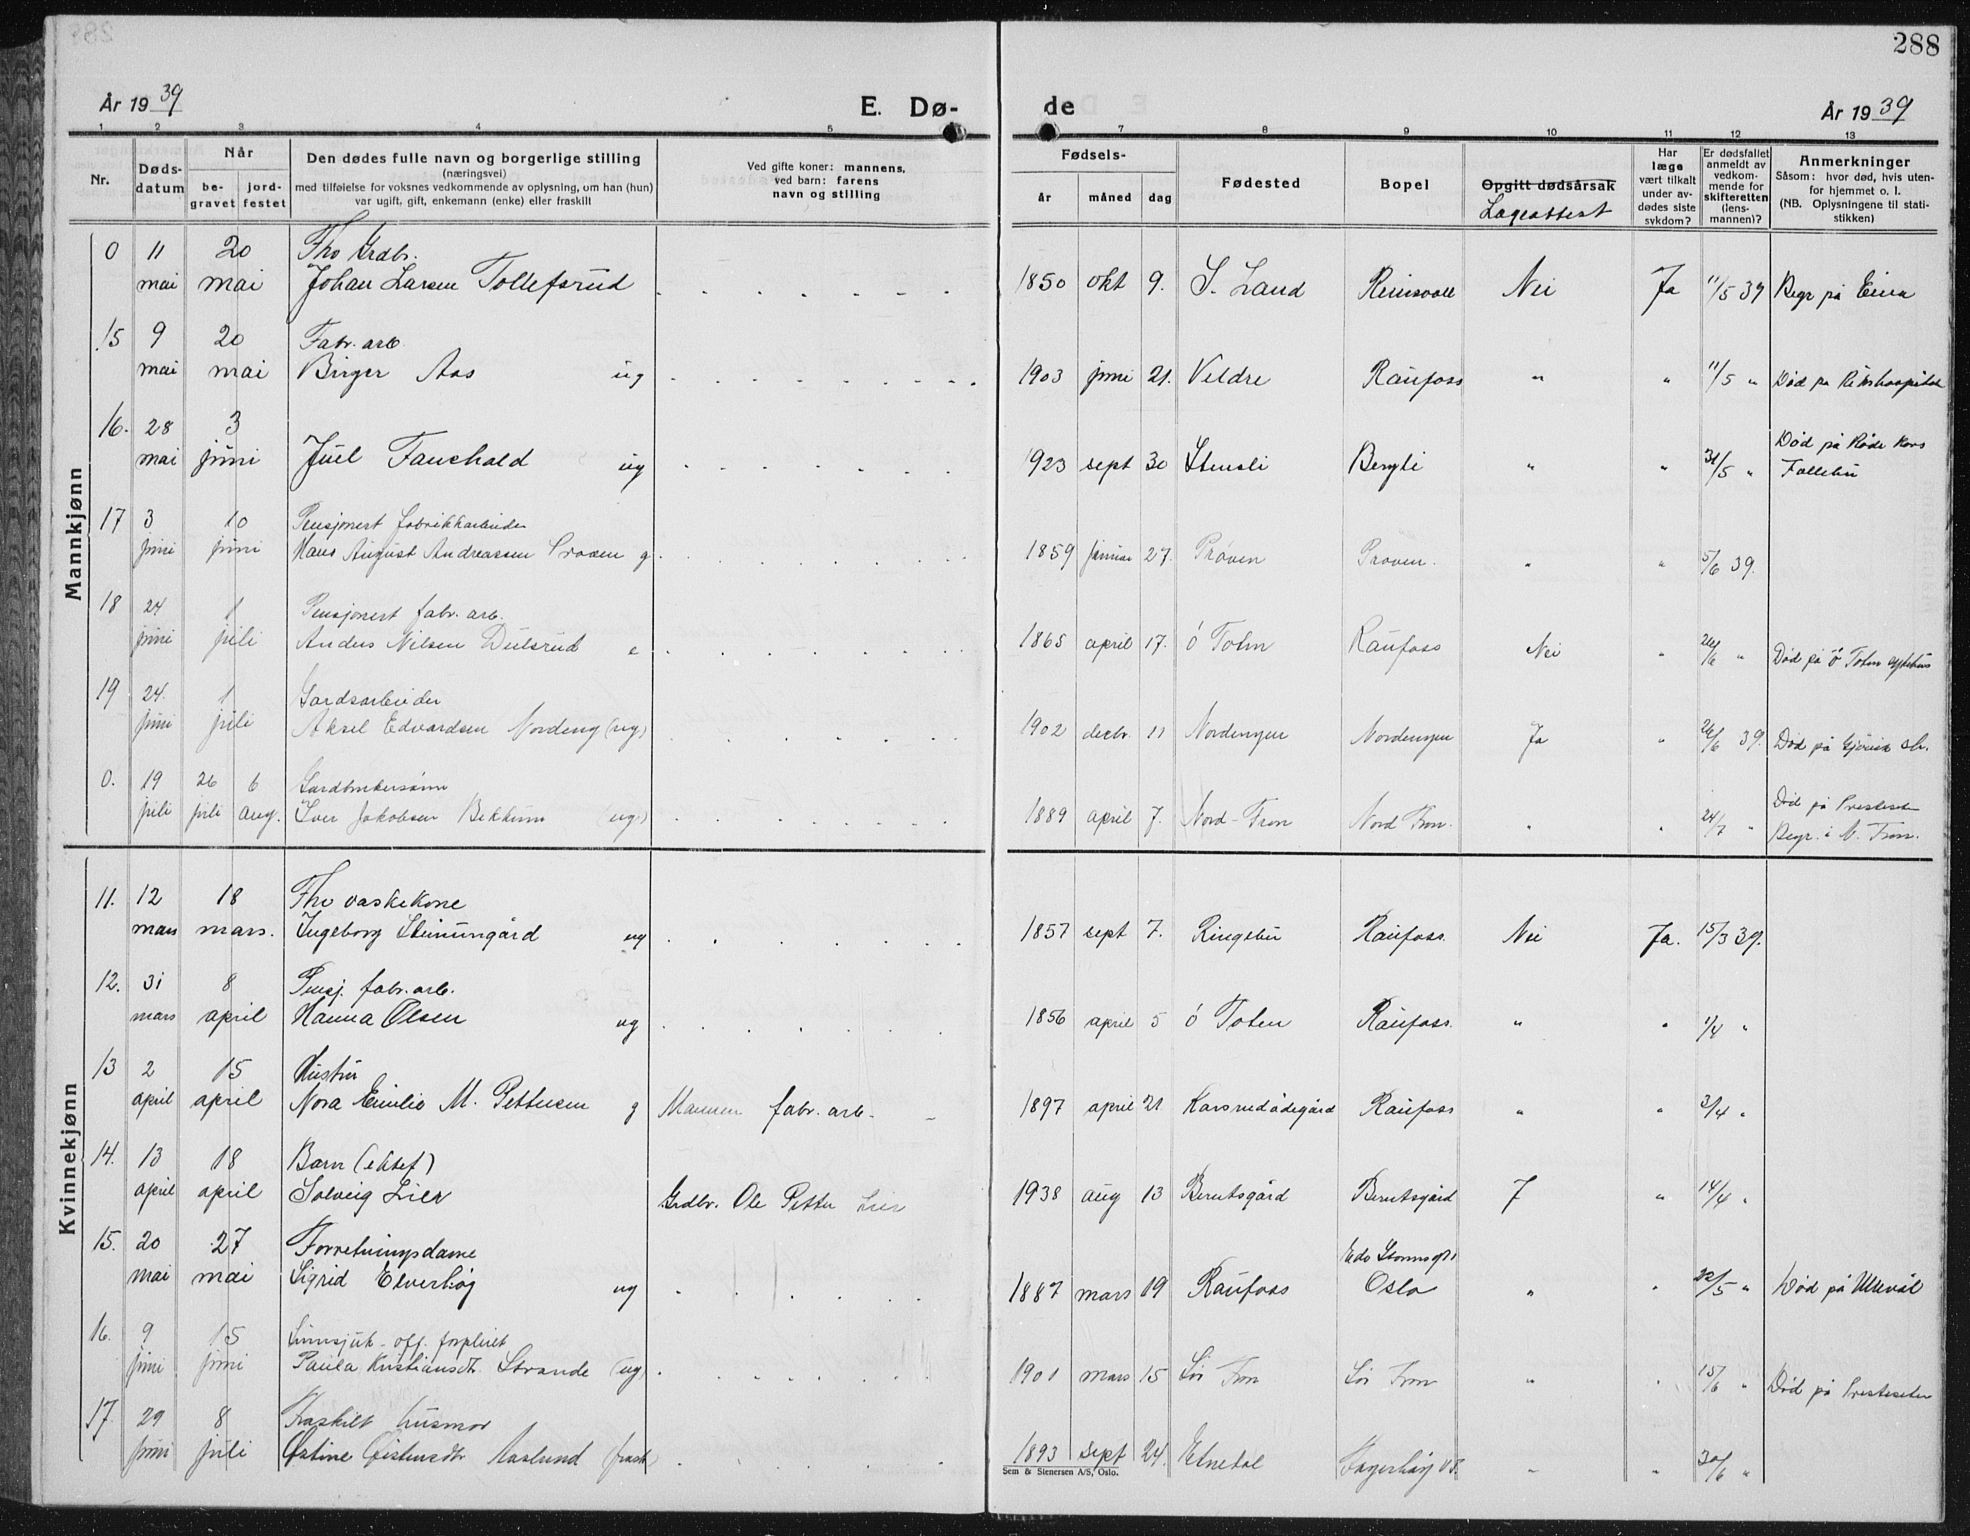 288
År 19 39
E. Dø-
de
År 19 39
1 2 3 4 5 7 8 9 10 11 12 13
Nr.
Døds-
datum
Når
be-
gravet
jord-
festet
Den dødes fulle navn og borgerlige stilling
(næringsvei)
med tilføielse for voksnes vedkommende av oplysning, om han (hun)
var ugift, gift, enkemann (enke) eller fraskilt
Ved gifte koner: mannens,
ved barn: farens
navn og stilling
Fødsels-
år måned dag
Fødested
Bopel
Opgitt dødsårsak
Lægeattest
Har
læge
vært tilkalt
under av-
dødes siste
sykdom?
Er dødsfallet
anmeldt av
vedkom-
mende for
skifteretten
(lens-
mannen)?
Anmerkninger
Såsom: hvor død, hvis uten-
for hjemmet o. l.
(NB. Oplysningene til stati-
stikken)
Mannkjønn
0 11 20 Fhv Grdbr.
mai mai Johan Larsen Tollefsrud 1850 okt 9. S. Land Reinsvoll Nei Ja 11/5 39 Begr på Eina
15 9 20 Fabr. arb.
mai mai Birger Aas ug 1903 juni 21. Veldre Raufoss " " 11/5 " Død på Rikshospitalet
16. 28 3 Død på Røde Kors
mai juni Juel Fauchald ug 1923 sept 30 Stensli Bergli " " 31/5 " Follebu
17 3 10 Pensjonert fabrikkarbeider
juni juni Hans August Andreassen Prøven g 1859 januar 27. Prøven Prøven. " " 5/6 39.
18 24 1 Pensjonert fabr. arb.
juni juli Anders Nilsen Dulsrud e 1865 april 17. Ö Toten Raufoss Nei " 26/6 " Død på Ö Toten sykehus
19 24. 1 Gardsarbeider
juni juli Aksel Edvardsen Nordeng (ug) 1902 decbr. 11 Nordengen Nordengen Ja " 26/6 39. Død på Gjøvik sh.
0. 19 26 6 Gardbrukersønn Død på Presteseter
juli juli aug. Iver Jakobsen Bekkum (ug) 1889 april 7. Nord-Fron Nord Fron. " " 24/7 " Begr. i N. Fron.
Kvinnekjønn
11. 12 18 Fhv vaskekone
mars mars. Ingeborg Steinumgård ug 1857 sept 7. Ringebu Raufoss. Nei Ja. 15/3 39.
12. 31 8 Pensj. fabr. arb.
mars april Hanna Olsen ug 1856 april 5 ö Toten Raufoss. " " 1/4 "
13 2 15 Hustru
april april Nora Emilie M. Pettersen g Mannen fabr. arb. 1897 april 21 Karsrudødegård Raufoss " " 3/4 "
14. 13 18 Barn (ektef)
april april Solveig Lier Grdbr. Ole Petter Lier 1938 aug 13 Berntsgård Berntsgård 7 " 14/4 "
15. 20 27 Forretningsdame
mai mai Sigrid Elverhøy ug 1887 mars 19 Raufoss Oslo " " 22/5 " Død på Ullevål
16. 9 15 Sinnsjuk - off. forpleiet
juni juni Paula Kristiansdtr. Strande (ug) 1901 mars 15 Sør Fron Sør Fron " " 15/6 " Død på Presteseter
17. 29 8 Fraskilt husmor
juni juli Østine Øistensdtr Aaslund (frask) 1893 sept 24. Etnedal Fagerhøy VT. " " 30/6 "
Sem & Stenersen A/S, Oslo.